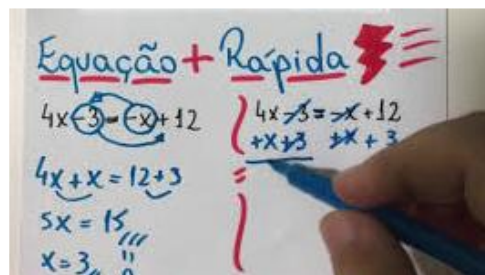 Equação + Rápida
4x - 3 = -x + 12
4x + x = 12 + 3
5x = 15,,,
x = 3,,
4x - 3 = -x + 12
+x + 3 +x + 3
=